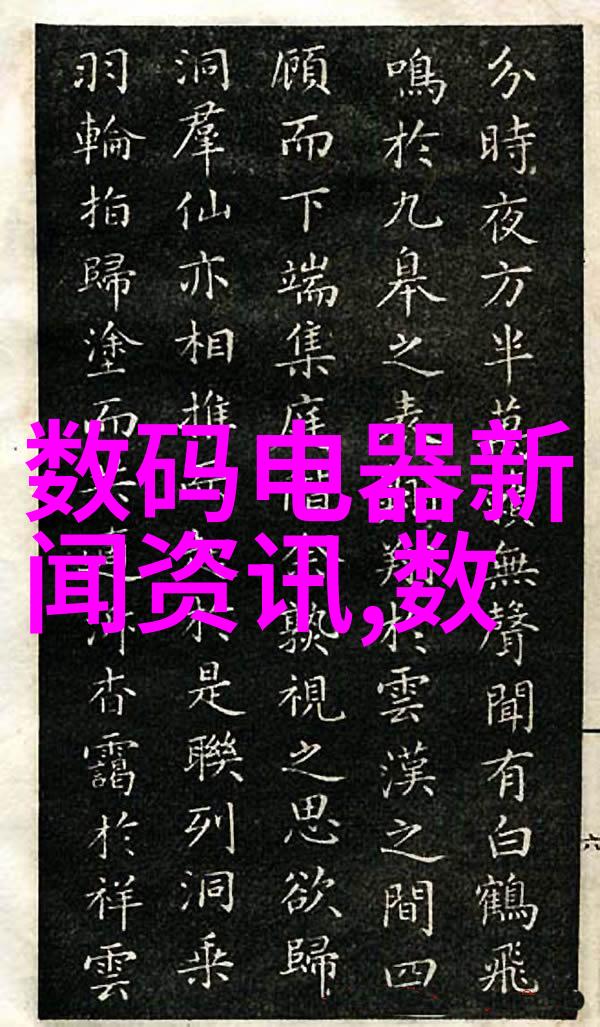 数码电器新
闻资讯,数
分時夜方半萬無聲聞有白鶴飛
鳴於九皋之表翔於雲漢之間四
顧而下端集庭孰視之思欲歸
洞羣仙亦相推於是聯列洞乘
羽輪拍歸塗而杳靄於祥雲
六